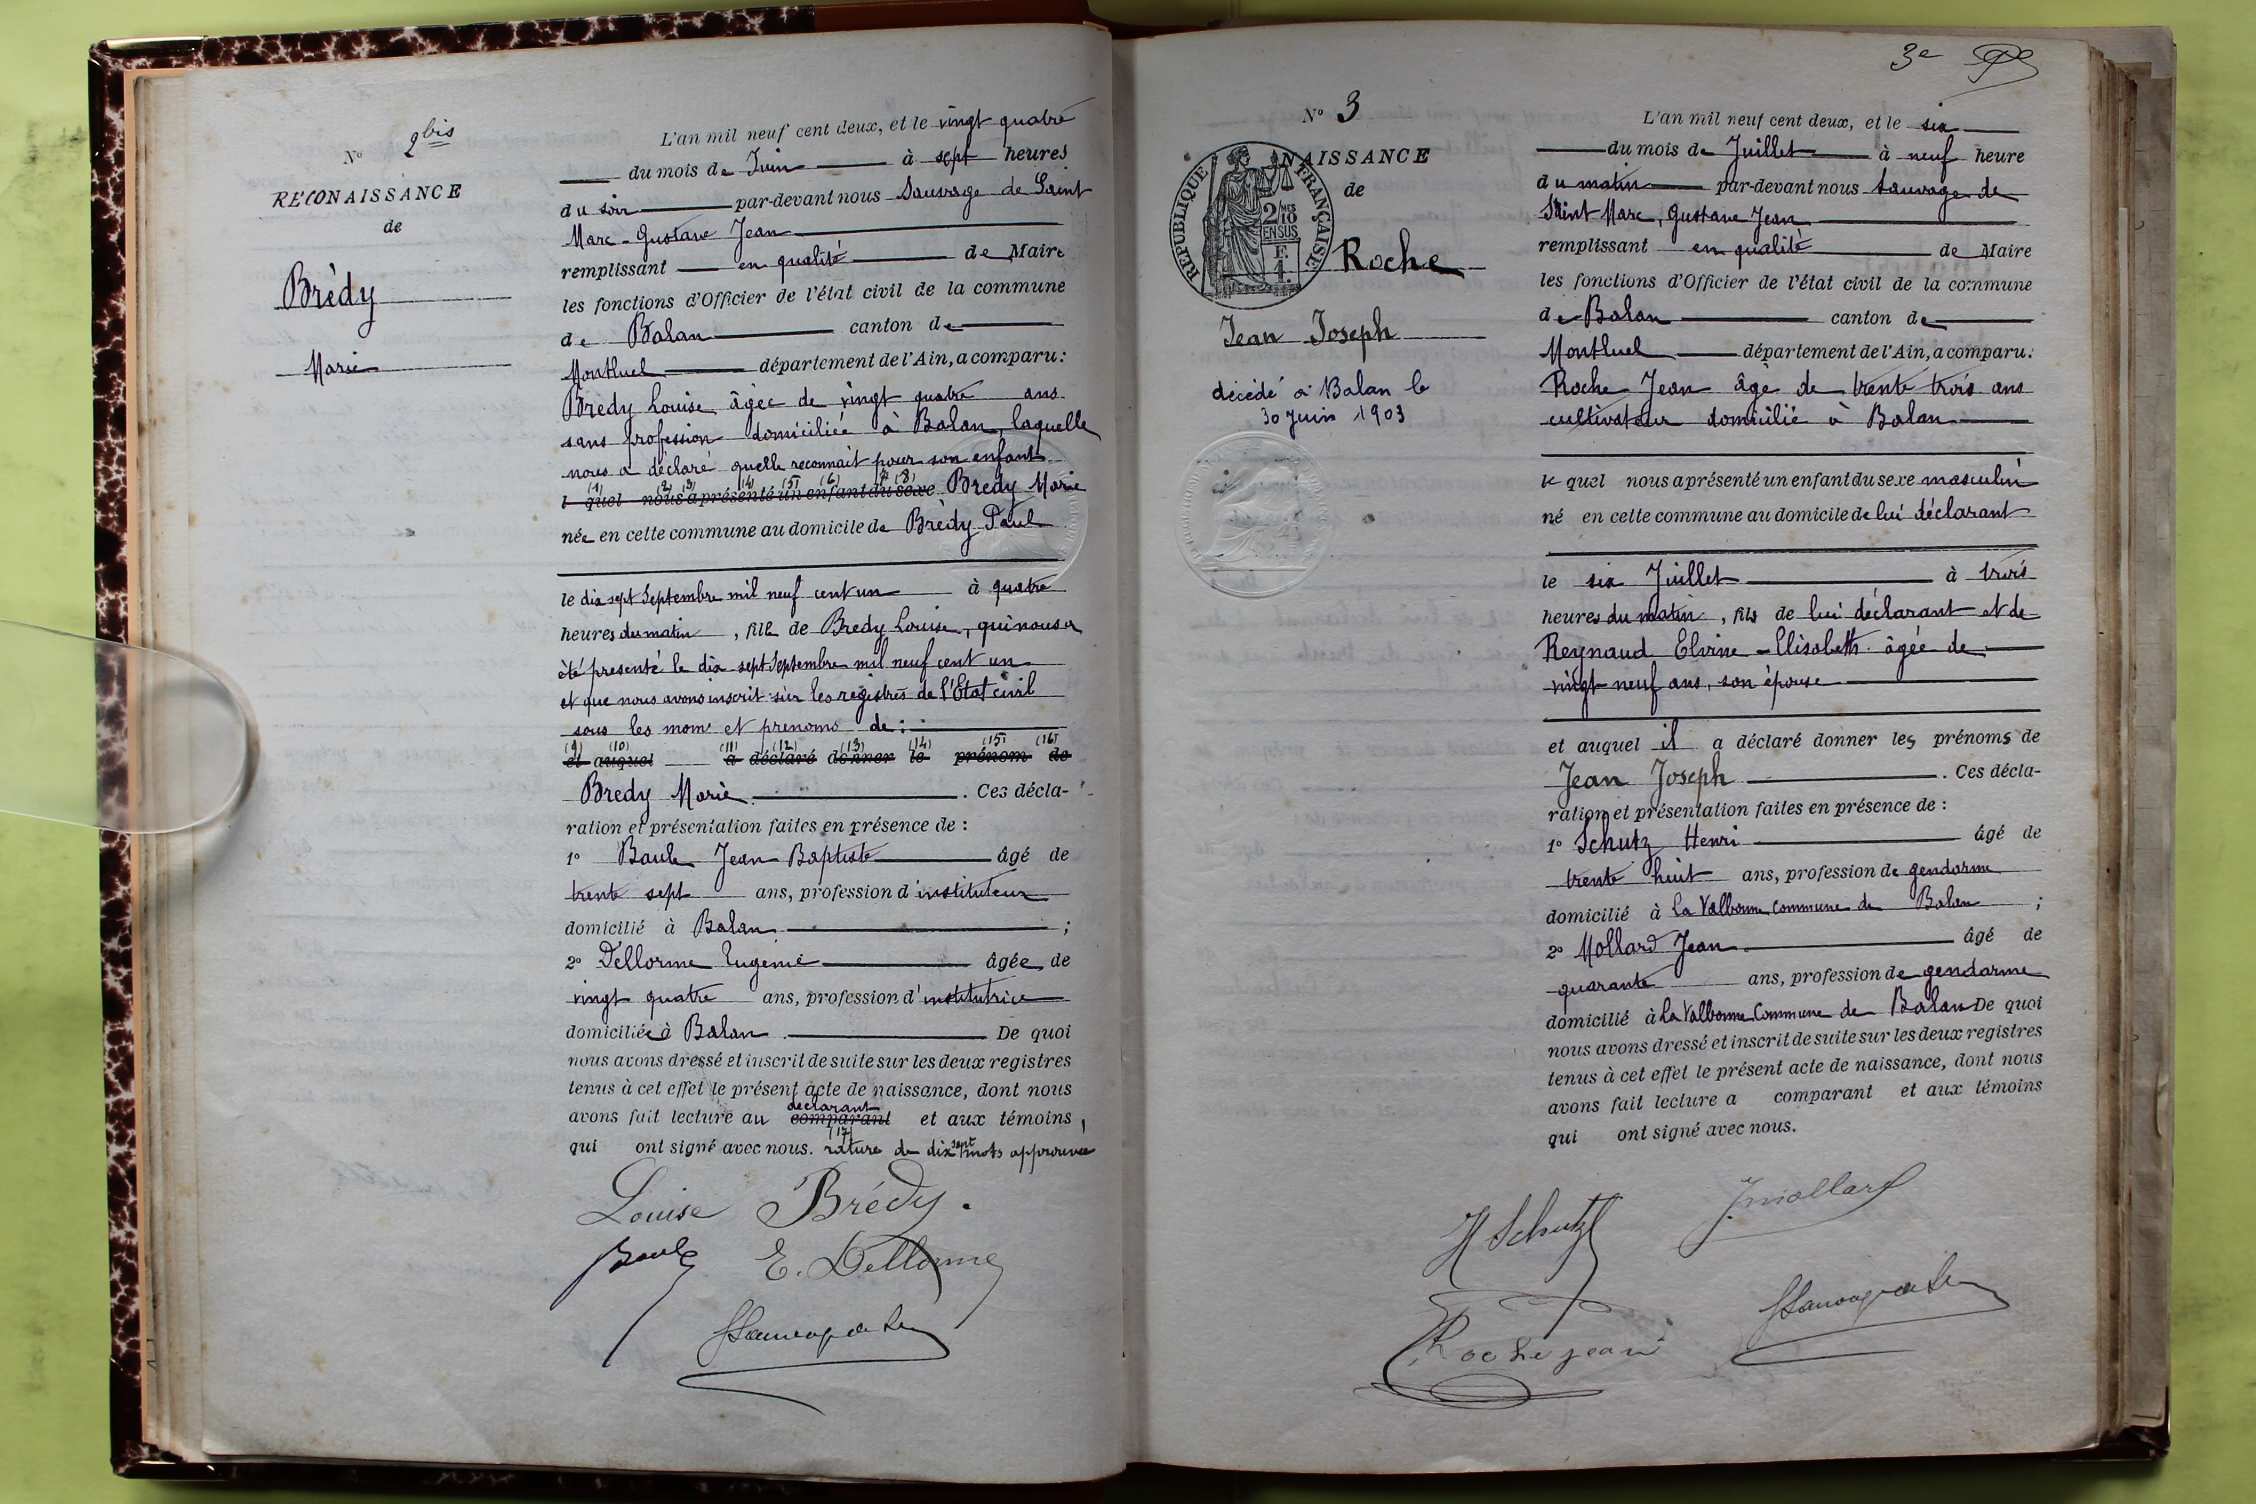 Nº 2bis
RECONAISSANCE
de
Brédy
Marie
L'an mil neuf cent deux, et le vingt quatre
du mois de Juin à sept heures
du soir par-devant nous Sauvage de Saint
Marc-Gustave Jean
remplissant en qualité de Maire
les fonctions d'Officier de l'état civil de la commune
de Balan canton de
Montluel département de l'Ain, a comparu:
Brédy Louise, âgée de vingt quatre ans
sans profession domiciliée à Balan, laquelle
nous a déclaré quelle reconnait pour son enfant
(1) (2) (3) (4) (5) (6) (7) (8)
l quel nous a présenté un enfant du sexe Bredy Marie
née en cette commune au domicile de Brèdy Paul
le dix sept Septembre mil neuf cent un à quatre
heures du matin, fille de Bredy Louise, qui nous a
été presenté le dix sept Septembre mil neuf cent un
et que nous avons inscrit sur les registres de l'Etat civil
sous les noms et prenoms de :
(9) (10) (11) (12) (13) (14) (15) (16)
et auquel a déclaré donner le prénom de
Bredy Marie. Ces décla-
ration et présentation faites en présence de :
1º Baule Jean Baptiste âgé de
trente sept ans, profession d'instituteur
domicilié à Balan ;
2º Dellorme Eugénie âgée de
vingt quatre ans, profession d'institutrice
domiciliée à Balan De quoi
nous avons dressé et inscrit de suite sur les deux registres
tenus à cet effet le présent acte de naissance, dont nous
déclarant
avons fait lecture au comparant et aux témoins,
(17)
qui ont signé avec nous. rature de dix sept mots approuvée
Louise Brédy.
Baule E. Dellorme
3e
Nº 3
NAISSANCE
de
REPUBLIQUE FRANÇAISE
2/10 MES
EN SUS
F.
1
Roche
Jean Joseph
décédé à Balan le
30 Juin 1903
L'an mil neuf cent deux, et le six
du mois de Juillet à neuf heure
du matin par-devant nous Sauvage de
Saint Marc, Gustave Jean
remplissant en qualité de Maire
les fonctions d'Officier de l'état civil de la commune
de Balan canton de
Montluel département de l'Ain, a comparu:
Roche Jean âgé de trente trois ans
cultivateur domicilié à Balan
le quel nous a présenté un enfant du sexe masculin
né en cette commune au domicile de lui déclarant
le six Juillet à trois
heures du matin, fils de lui déclarant et de
Reynaud Elvine-Elisabeth âgée de
vingt neuf ans, son épouse
et auquel il a déclaré donner les prénoms de
Jean Joseph. Ces décla-
ration et présentation faites en présence de :
1º Schutz Henri âgé de
trente huit ans, profession de gendarme
domicilié à La Valbonne commune de Balan ;
2º Mollard Jean âgé de
quarante ans, profession de gendarme
domicilié à La Valbonne Commune de Balan De quoi
nous avons dressé et inscrit de suite sur les deux registres
tenus à cet effet le présent acte de naissance, dont nous
avons fait lecture a comparant et aux témoins
qui ont signé avec nous.
H Schutz J. mollard
Roche jean